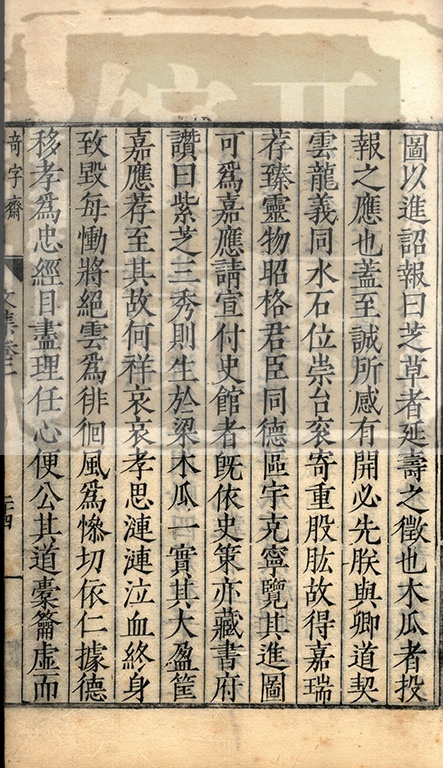 圖以進詔報曰芝草者延壽之徵也木瓜者投
報之應也蓋至誠所感有開必先朕與卿道契
雲龍義同水石位崇台袞寄重股肱故得嘉瑞
荐臻靈物昭格君臣同德區宇克寧覽其進圖
可爲嘉應請宣付史館者旣依史策亦藏書府
讚曰紫芝三秀則生於梁木瓜一實其大盈筐
嘉應荐至其故何祥哀哀孝思漣漣泣血終身
致毀每慟將絕雲爲徘徊風爲慘切依仁據德
移孝爲忠經目盡理任心便公其道橐籥虛而
奇字齋
文集卷二
二四